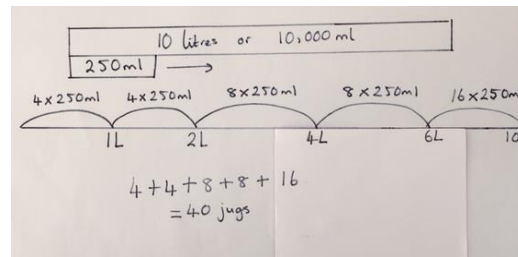 10 litres or 10,000 ml
250ml
4 x 250ml 4 x 250ml 8 x 250ml 8 x 250ml 16 x 250m
1L 2L 4L 6L 10
4 + 4 + 8 + 8 + 16
= 40 jugs